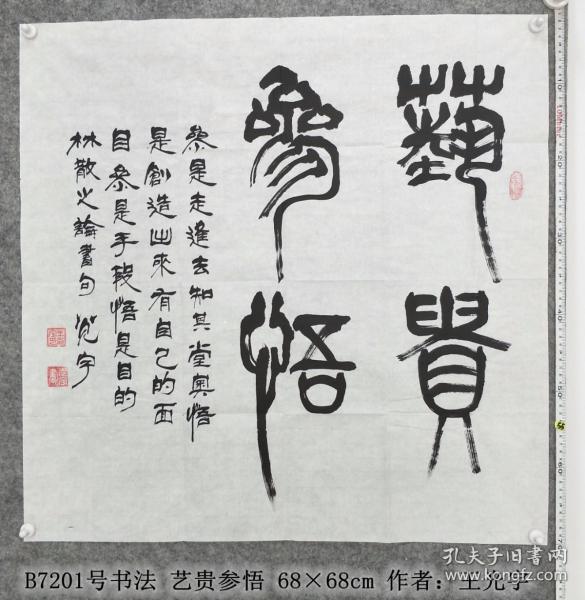 藝貴
參悟
參是走進去知其堂奧悟
是創造出來有自己的面
目參是手段悟是目的
林散之論書句
B7201号书法 艺贵参悟 68×68cm 作者：
孔夫子旧书网
www.kongfz.com